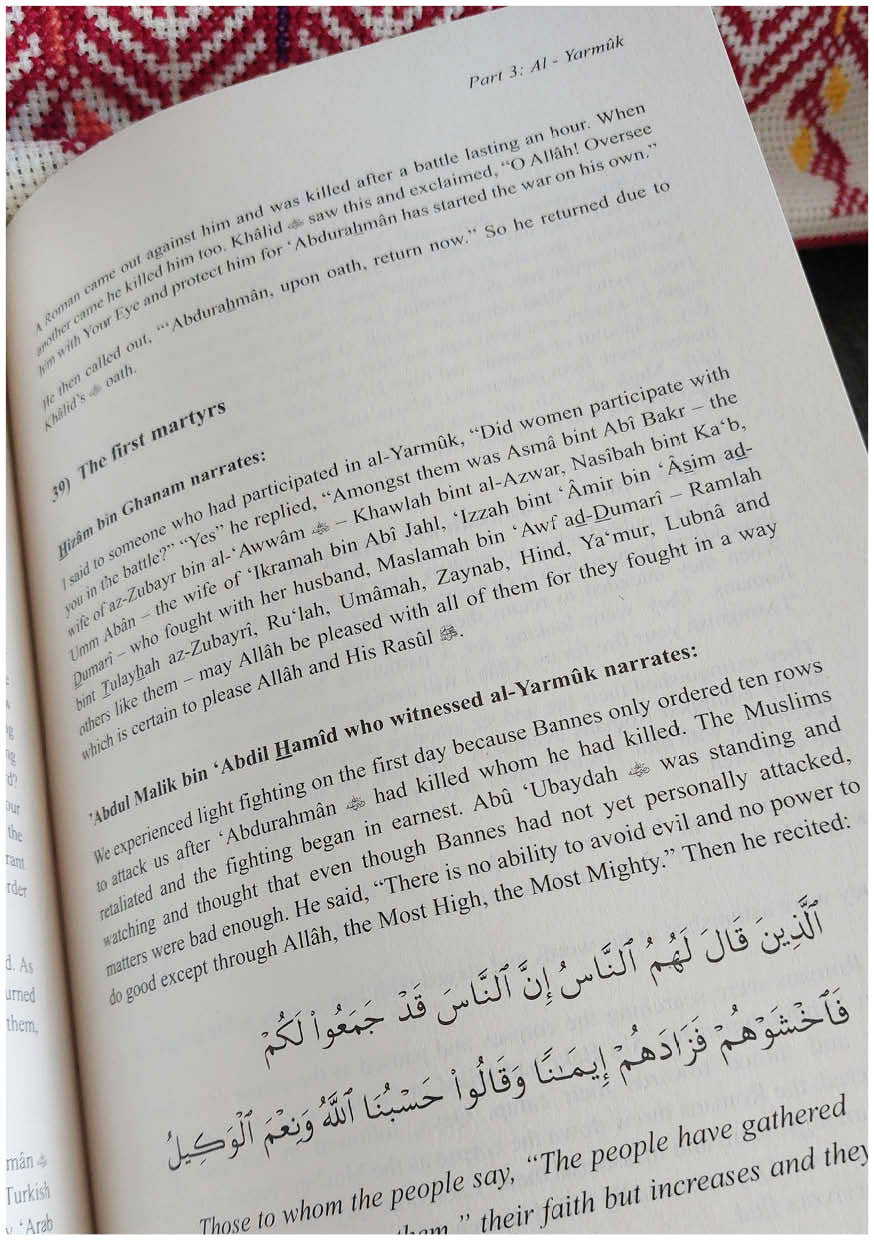 Part 3: Al - Yarmûk
A Roman came out against him and was killed after a battle lasting an hour. When
another came he killed him too. Khâlid saw this and exclaimed, “O Allâh! Oversee
him with Your Eye and protect him for ‘Abdurahmân has started the war on his own.”
He then called out, “‘Abdurahmân, upon oath, return now.” So he returned due to
Khâlid’s oath.
39) The first martyrs
Hizâm bin Ghanam narrates:
I said to someone who had participated in al-Yarmûk, “Did women participate with
you in the battle?” “Yes” he replied, “Amongst them was Asmâ bint Abî Bakr – the
wife of az-Zubayr bin al-‘Awwâm – Khawlah bint al-Azwar, Nasîbah bint Ka‘b,
Umm Abân – the wife of ‘Ikramah bin Abî Jahl, ‘Izzah bint ‘Âmir bin ‘Âsim ad-
Dumarî – who fought with her husband, Maslamah bin ‘Awf ad-Dumarî – Ramlah
bint Tulayhah az-Zubayrî, Ru‘lah, Umâmah, Zaynab, Hind, Ya‘mur, Lubnâ and
others like them – may Allâh be pleased with all of them for they fought in a way
which is certain to please Allâh and His Rasûl ﷺ.
’Abdul Malik bin ‘Abdil Hamîd who witnessed al-Yarmûk narrates:
We experienced light fighting on the first day because Bannes only ordered ten rows
to attack us after ‘Abdurahmân had killed whom he had killed. The Muslims
retaliated and the fighting began in earnest. Abû ‘Ubaydah was standing and
watching and thought that even though Bannes had not yet personally attacked,
matters were bad enough. He said, “There is no ability to avoid evil and no power to
do good except through Allâh, the Most High, the Most Mighty.” Then he recited:
ٱلَّذِينَ قَالَ لَهُمُ ٱلنَّاسُ إِنَّ ٱلنَّاسَ قَدْ جَمَعُوا۟ لَكُمْ
فَٱخْشَوْهُمْ فَزَادَهُمْ إِيمَـٰنًا وَقَالُوا۟ حَسْبُنَا ٱللَّهُ وَنِعْمَ ٱلْوَكِيلُ
Those to whom the people say, “The people have gathered
their faith but increases and they
d?
our
the
rant
rder
d. As
urned
them,
mân
Turkish
‘Arab